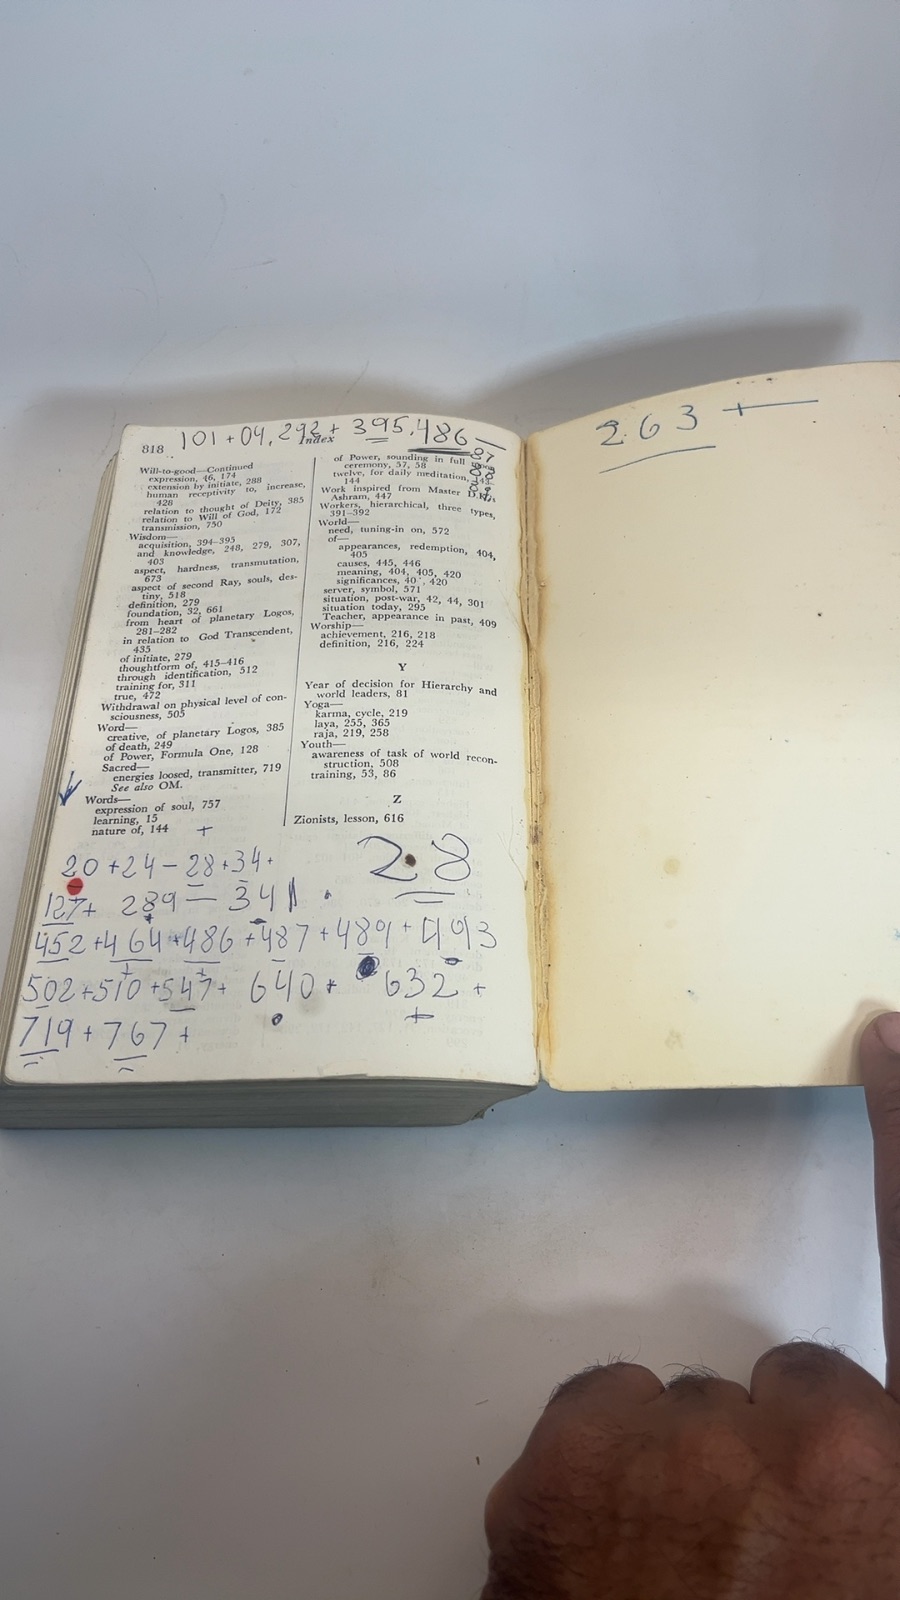 101 + 04, 292 + 395, 486 —
818 Index
Will-to-good—Continued
expression, 46, 174
extension by initiate, 288
human receptivity to, increase,
428
relation to thought of Deity, 385
relation to Will of God, 172
transmission, 750
Wisdom—
acquisition, 394-395
and knowledge, 248, 279, 307,
403
aspect, hardness, transmutation,
673
aspect of second Ray, souls, des-
tiny, 518
definition, 279
foundation, 32, 661
from heart of planetary Logos,
281-282
in relation to God Transcendent,
435
of initiate, 279
thoughtform of, 415-416
through identification, 512
training for, 311
true, 472
Withdrawal on physical level of con-
sciousness, 505
Word—
creative, of planetary Logos, 385
of death, 249
of Power, Formula One, 128
Sacred—
energies loosed, transmitter, 719
See also OM.
Words—
expression of soul, 757
learning, 15
nature of, 144
of Power, sounding in full
ceremony, 57, 58
twelve, for daily meditation,
144
Work inspired from Master D.K.'s
Ashram, 447
Workers, hierarchical, three types,
391-392
World—
need, tuning-in on, 572
of—
appearances, redemption, 404,
405
causes, 445, 446
meaning, 404, 405, 420
significances, 420
server, symbol, 571
situation, post-war, 42, 44, 301
situation today, 295
Teacher, appearance in past, 409
Worship—
achievement, 216, 218
definition, 216, 224
Y
Year of decision for Hierarchy and
world leaders, 81
Yoga—
karma, cycle, 219
laya, 255, 365
raja, 219, 258
Youth—
awareness of task of world recon-
struction, 508
training, 53, 86
Z
Zionists, lesson, 616
20 + 24 - 28 + 34 +
28
127 + 289 — 341
452 + 464 + 486 + 487 + 489 + 493
502 + 510 + 547 + 640 + 632 +
719 + 767 +
263 +